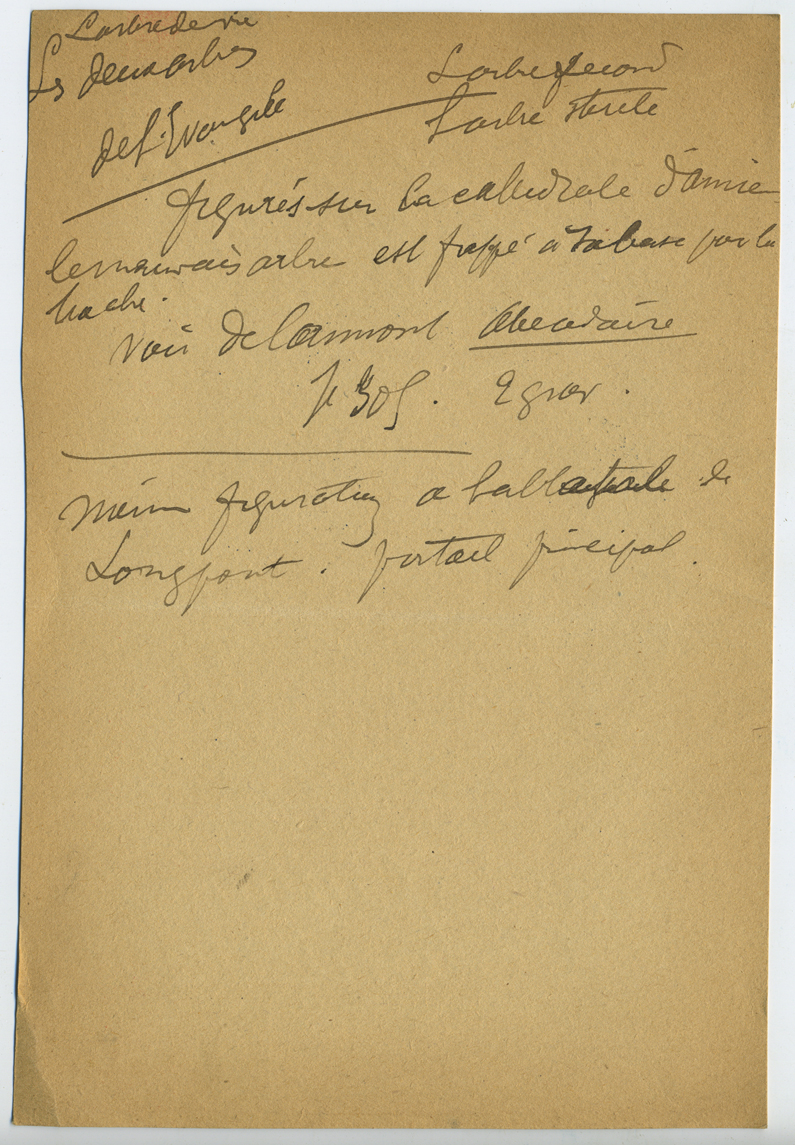 L'arbre de vie
Les deux arbres
de l'Evangile
L'arbre fecond
L'arbre sterile
figurés sur la cathedrale d'Amien
le mauvais arbre est frappé a sa base par la
hache.
Voir de Caumont Abecedaire
p 305. 2 grav.
Même figuration a l'abbatiale de
Longpont. portail principal.